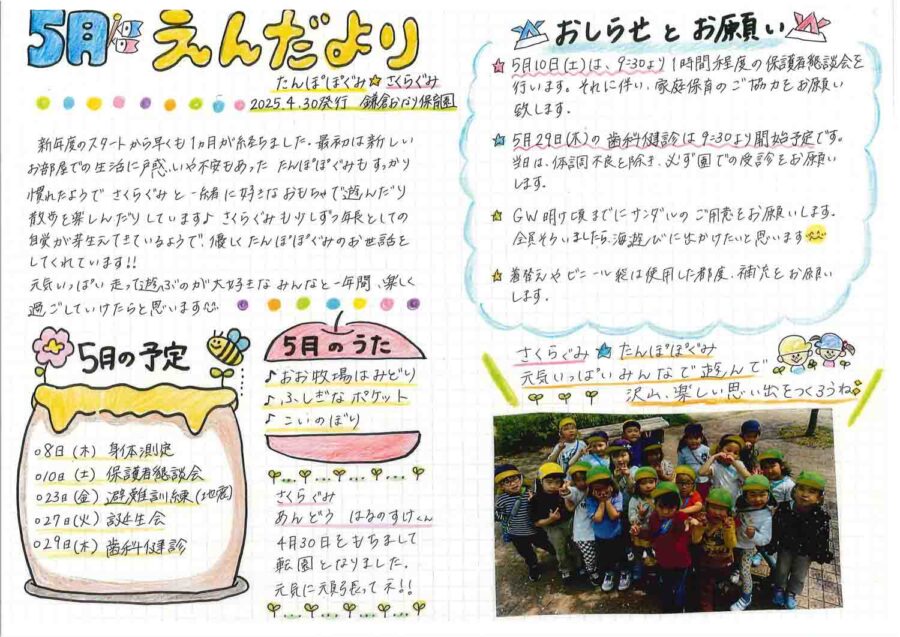 5月 えんだより
たんぽぽぐみ☆さくらぐみ
2025.4.30発行 鎌倉おなり保育園
新年度のスタートから早くも1カ月が経ちました。最初は新しい
お部屋での生活に戸惑いや不安もあった たんぽぽぐみもすっかり
慣れたようで さくらぐみと一緒に好きなおもちゃで遊んだり
散歩を楽しんだりしています♪ さくらぐみも少しずつ年長としての
自覚が芽生えてきているようで、優しくたんぽぽぐみのお世話を
してくれています!!
元気いっぱい走って遊ぶのが大好きな みんなと一年間、楽しく
過ごしていけたらと思います
5月の予定
○8日(木) 身体測定
○10日(土) 保護者懇談会
○23日(金) 避難訓練(地震)
○27日(火) 誕生会
○29日(木) 歯科健診
5月のうた
♪おお牧場はみどり
♪ふしぎなポケット
♪こいのぼり
さくらぐみ
あんどう はるのすけくん
4月30日をもちまして
転園となりました。
元気に頑張ってネ!!
おしらせとお願い
☆5月10日(土)は、9:30より1時間程度の保護者懇談会を
行います。それに伴い、家庭保育のご協力をお願い
致します。
☆5月29日(木)の歯科健診は9:30より開始予定です。
当日は、体調不良を除き、必ず園での受診をお願い
します。
☆GW明け頃までにサンダルのご用意をお願いします。
全員そろいましたら、海遊びに出かけたいと思います
☆着替えやビニール袋は使用した都度、補充をお願い
します。
さくらぐみ☆たんぽぽぐみ
元気いっぱいみんなで遊んで
沢山、楽しい思い出をつくろうね